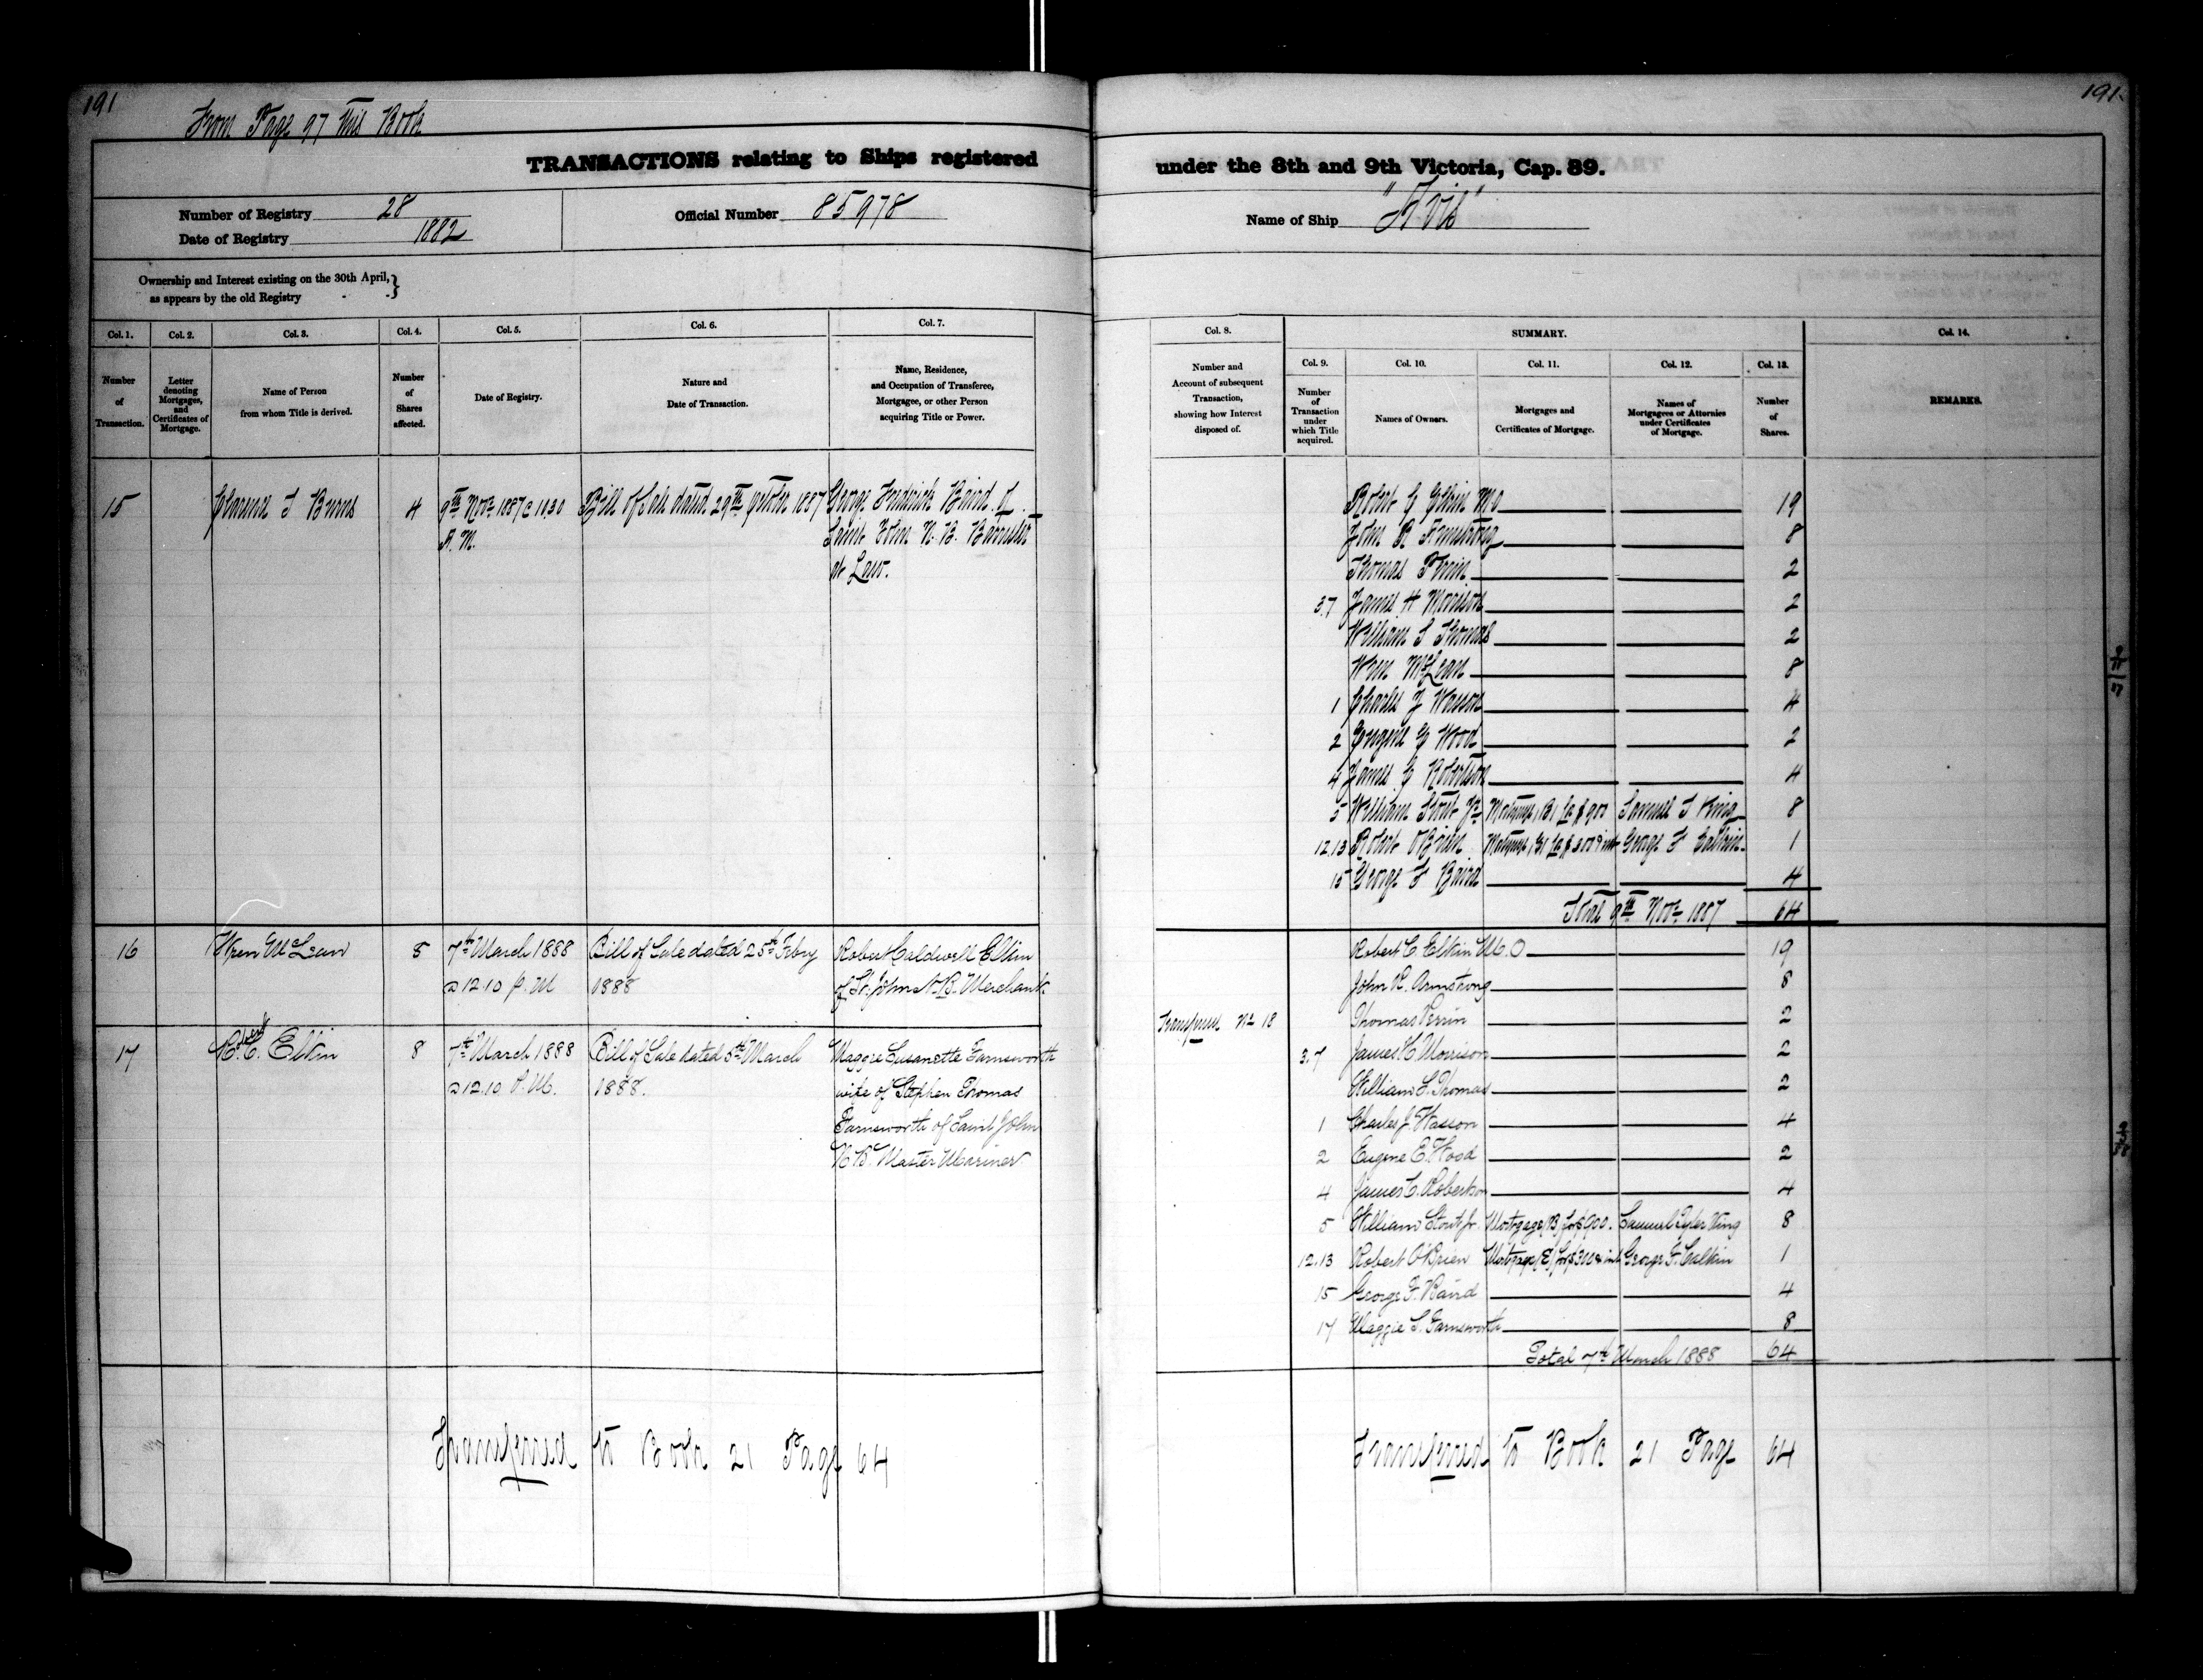 191
191.
From Page 97 this Book
TRANSACTIONS relating to Ships registered under the 8th and 9th Victoria, Cap. 89.
Number of Registry 28
Date of Registry 1882
Official Number 85978
Name of Ship "Avis"
Ownership and Interest existing on the 30th April,}
as appears by the old Registry
Col. 1. Col. 2. Col. 3. Col. 4. Col. 5. Col. 6. Col. 7.
Number of Transaction.
Letter denoting Mortgages, and Certificates of Mortgage.
Name of Person from whom Title is derived.
Number of Shares affected.
Date of Registry.
Nature and Date of Transaction.
Name, Residence, and Occupation of Transferee, Mortgagee, or other Person acquiring Title or Power.
Col. 8. SUMMARY. Col. 14.
Col. 9. Col. 10. Col. 11. Col. 12. Col. 13.
Number and Account of subsequent Transaction, showing how Interest disposed of.
Number of Transaction under which Title acquired.
Names of Owners.
Mortgages and Certificates of Mortgage.
Names of Mortgagees or Attornies under Certificates of Mortgage.
Number of Shares.
REMARKS.
15 T Burns 4 9th Novr 1887 @ 10.30 Bill of Sale dated 29th 1887 George Fredrick Baird of
A.M. Saint John N.B. Barrister
at Law.
Robert C Elkin MO 19
John R Armstrong 8
Thomas Perrin 2
3.7 James H Morrison 2
William L Thomas 2
Wren McLean 8
1 Charles J Wasson 4
2 Eugene E Wood 2
4 James C Robertson 4
5 William Stout Jr Mortgage $900 Samuel T King 8
12.13 Robert OBrien Mortgage George F Calkin 1
15 George F Baird 4
Total 9th Novr 1887 64
16 Wren McLean 8 7th March 1888 Bill of Sale dated 25th Feby Robert Caldwell Elkin
@ 12.10 P.M 1888 of St. John N.B. Merchant.
17 C. Elkin 8 7th March 1888 Bill of Sale dated 5th March Maggie Susanette Farnsworth
@ 12.10 P.M. 1888. wife of Stephen Thomas
Farnsworth of Saint John
N.B. Master Mariner
Robert C. Elkin M.O 19
John R. Armstrong 8
No 18 Thomas Perrin 2
3.7 James H. Morrison 2
William L. Thomas 2
1 Charles J. Wasson 4
2 Eugene E. Wood 2
4 James C. Robertson 4
5 William Stout Jr. Mortgage (B) for $900. Samuel Tyler King 8
12.13 Robert O'Brien Mortgage (E) for $300 & int George F. Calkin 1
15 George F. Baird 4
17 Maggie S. Farnsworth 8
Total 7th March 1888 64
Transferred to Book 21 Page 64
Transferred to Book 21 Page 64